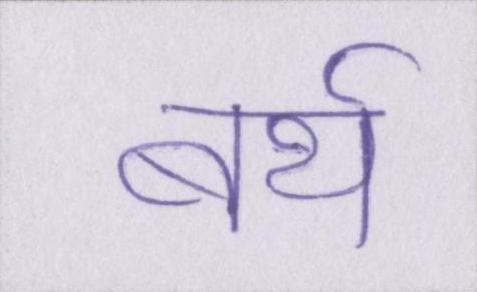 बर्थ